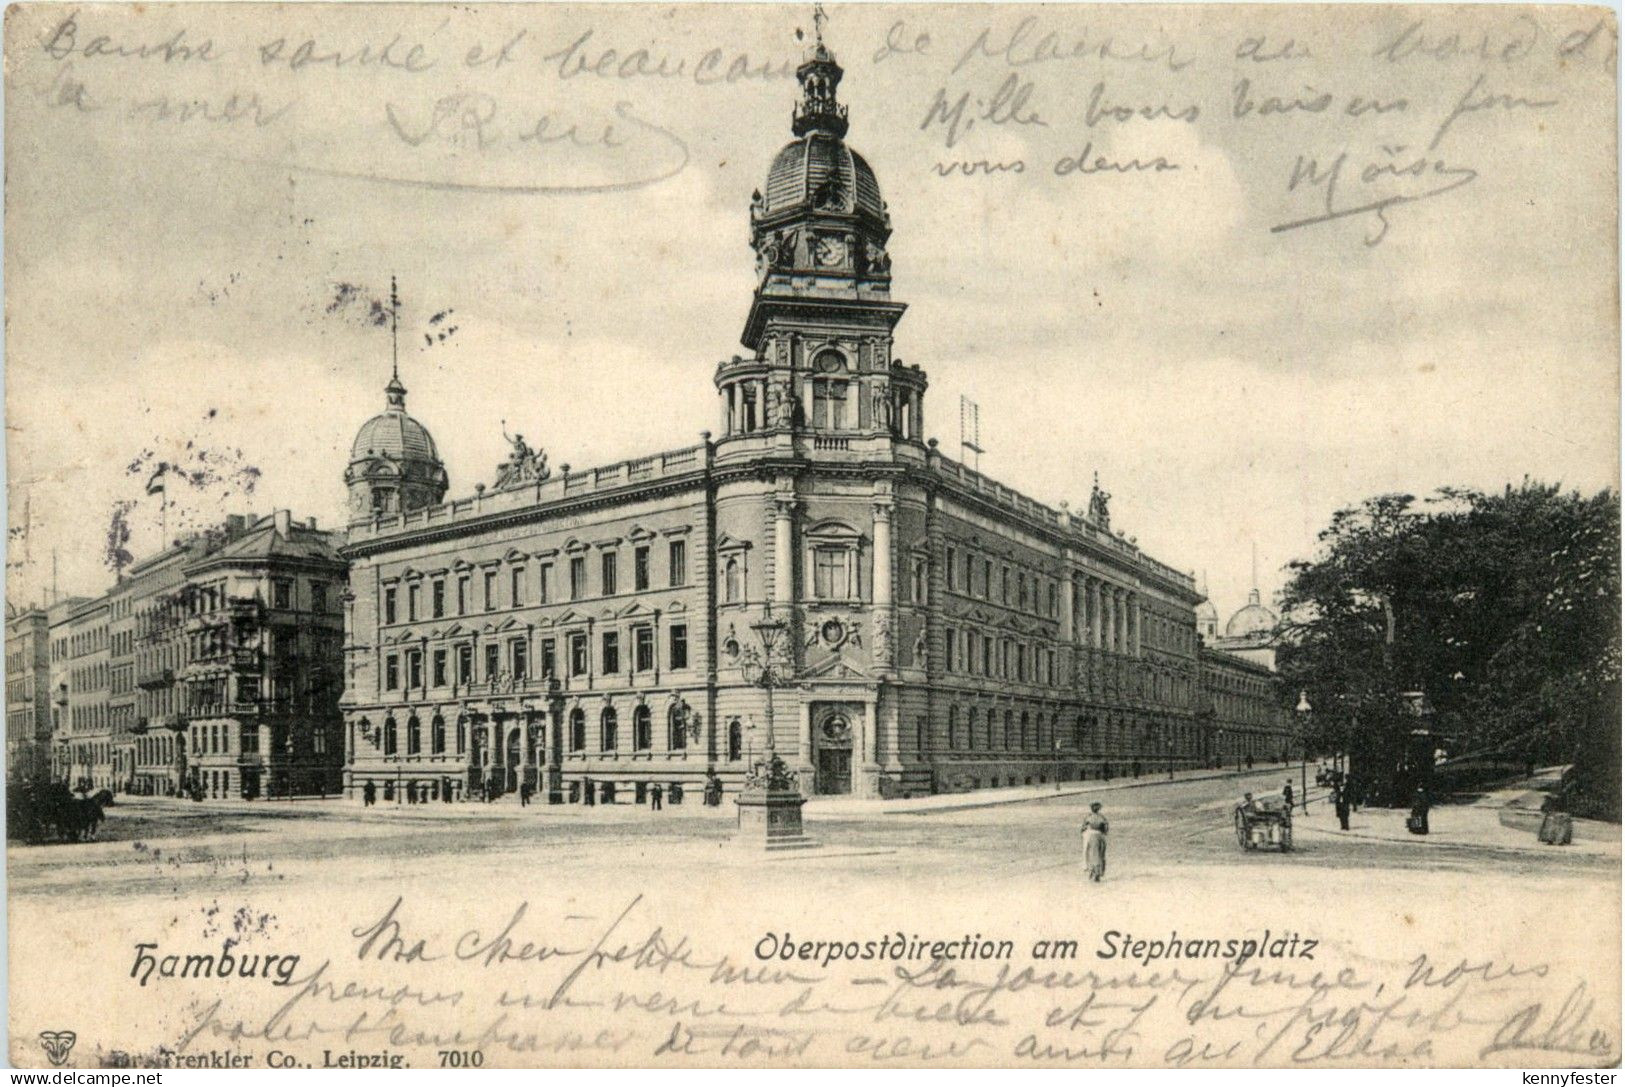 santé et beaucoup de plaisir au bord de
la mer René
Mille bons baisers pour
vous deux. Moïse
Hamburg
Oberpostdirection am Stephansplatz
Ma chère petite - La journée finie, nous
prenons un verre de bière et j'en profite
pour t'embrasser de tout cœur ainsi qu'
Dr. Trenkler Co., Leipzig. 7010
delcampe.net
kennyfester